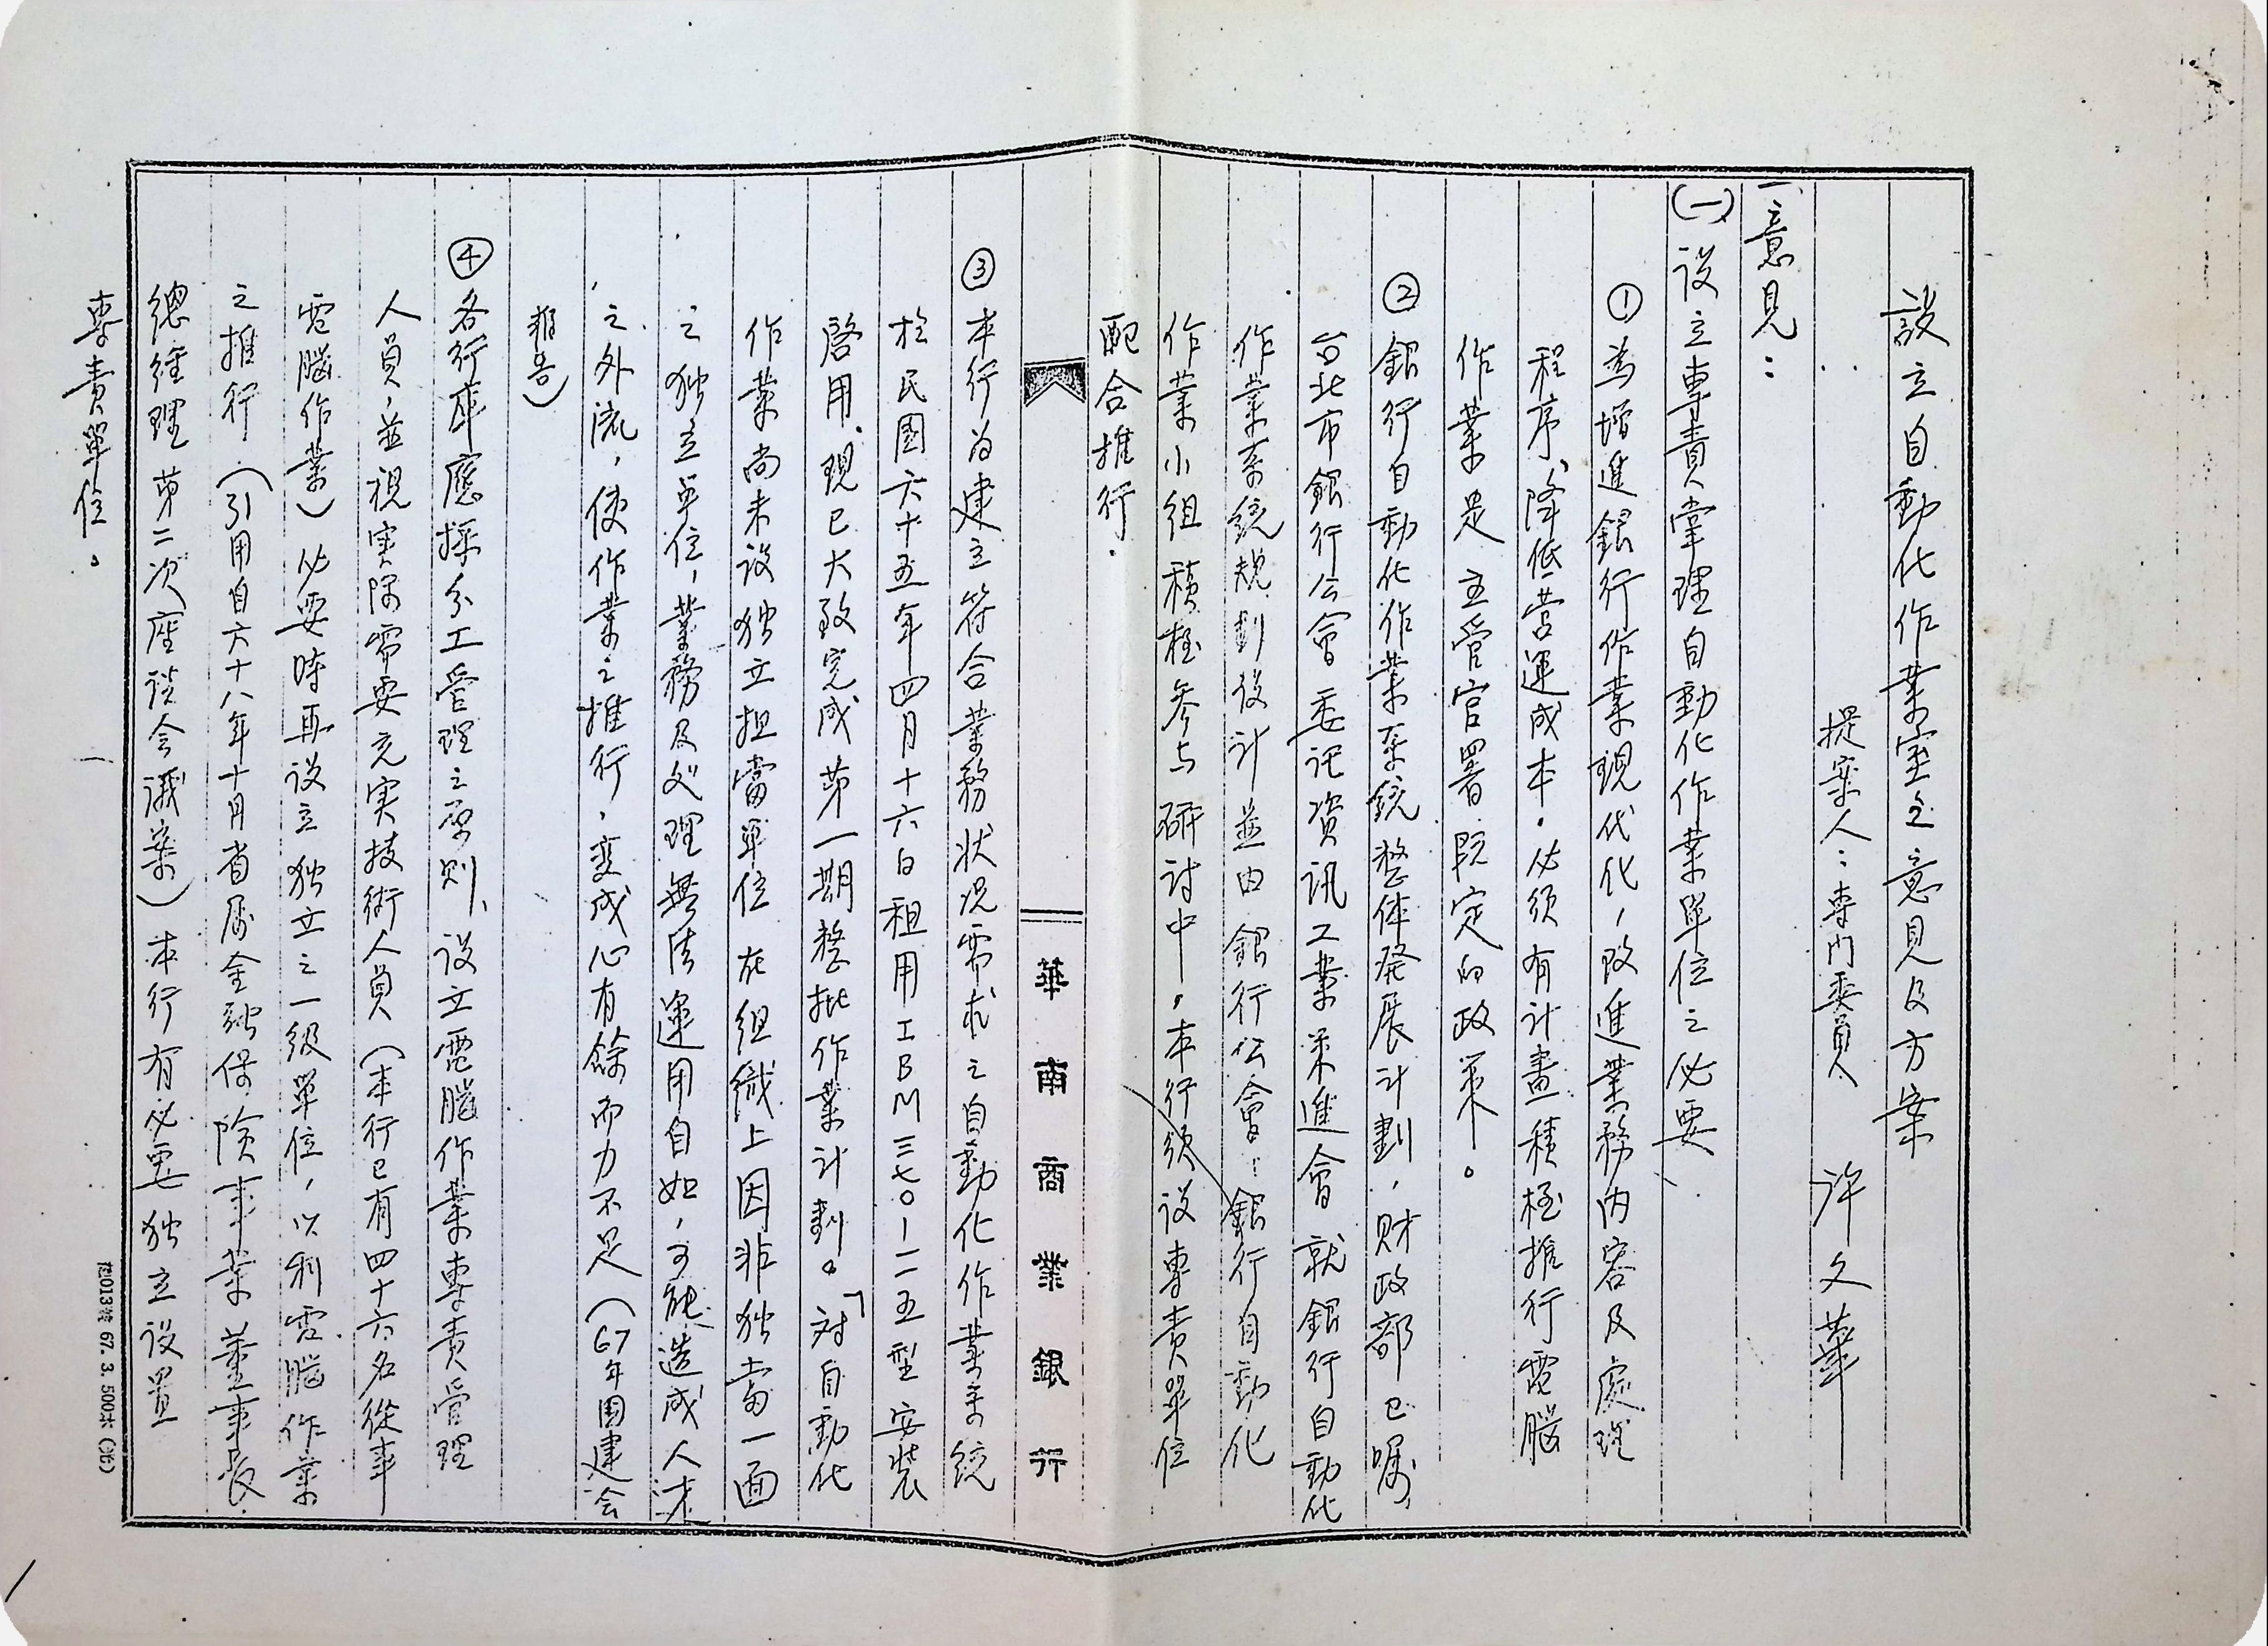 設立自動化作業室之意見及方案
提案人：專門委員 許文華
一、意見：
(一)設立專責掌理自動化作業單位之必要
①為增進銀行作業現代化，改進業務內容及處理
程序、降低營運成本，必須有計畫積極推行電腦
作業是主管官署既定的政策。
②銀行自動化作業系統整体発展計劃，財政部已囑
台北市銀行公會委託資訊工業策進會就銀行自動化
作業系統規劃設計並由銀行公會：銀行自動化
作業小组積極参与研討中，本行须设專责單位
配合推行．
華南商業銀行
③本行为建立符合業務状况需求之自動化作業系统
於民國六十五年四月十六日租用IBM三七〇－一二五型安裝
啓用，現已大致完成第一期整批作業计劃。「对自動化
作業尚未设独立担當單位在组織上因非独当一面
之独立单位，業務及処理無法運用自如，可能造成人才
之外流，使作業之推行，変成心有餘而力不足（67年国建会
報告）
④各行庫應採分工管理之原则、设立電腦作業專责管理
人員，並視实际需要充实技術人員（本行已有四十六名從事
電腦作業）必要時再设立独立之一级單位，以利電腦作業
之推行．（引用自六十八年十月省属金融保険事業董事長
總經理第二次座谈会議案）本行有必要独立设置
專責單位。
起013號 67. 3. 500本（紙）